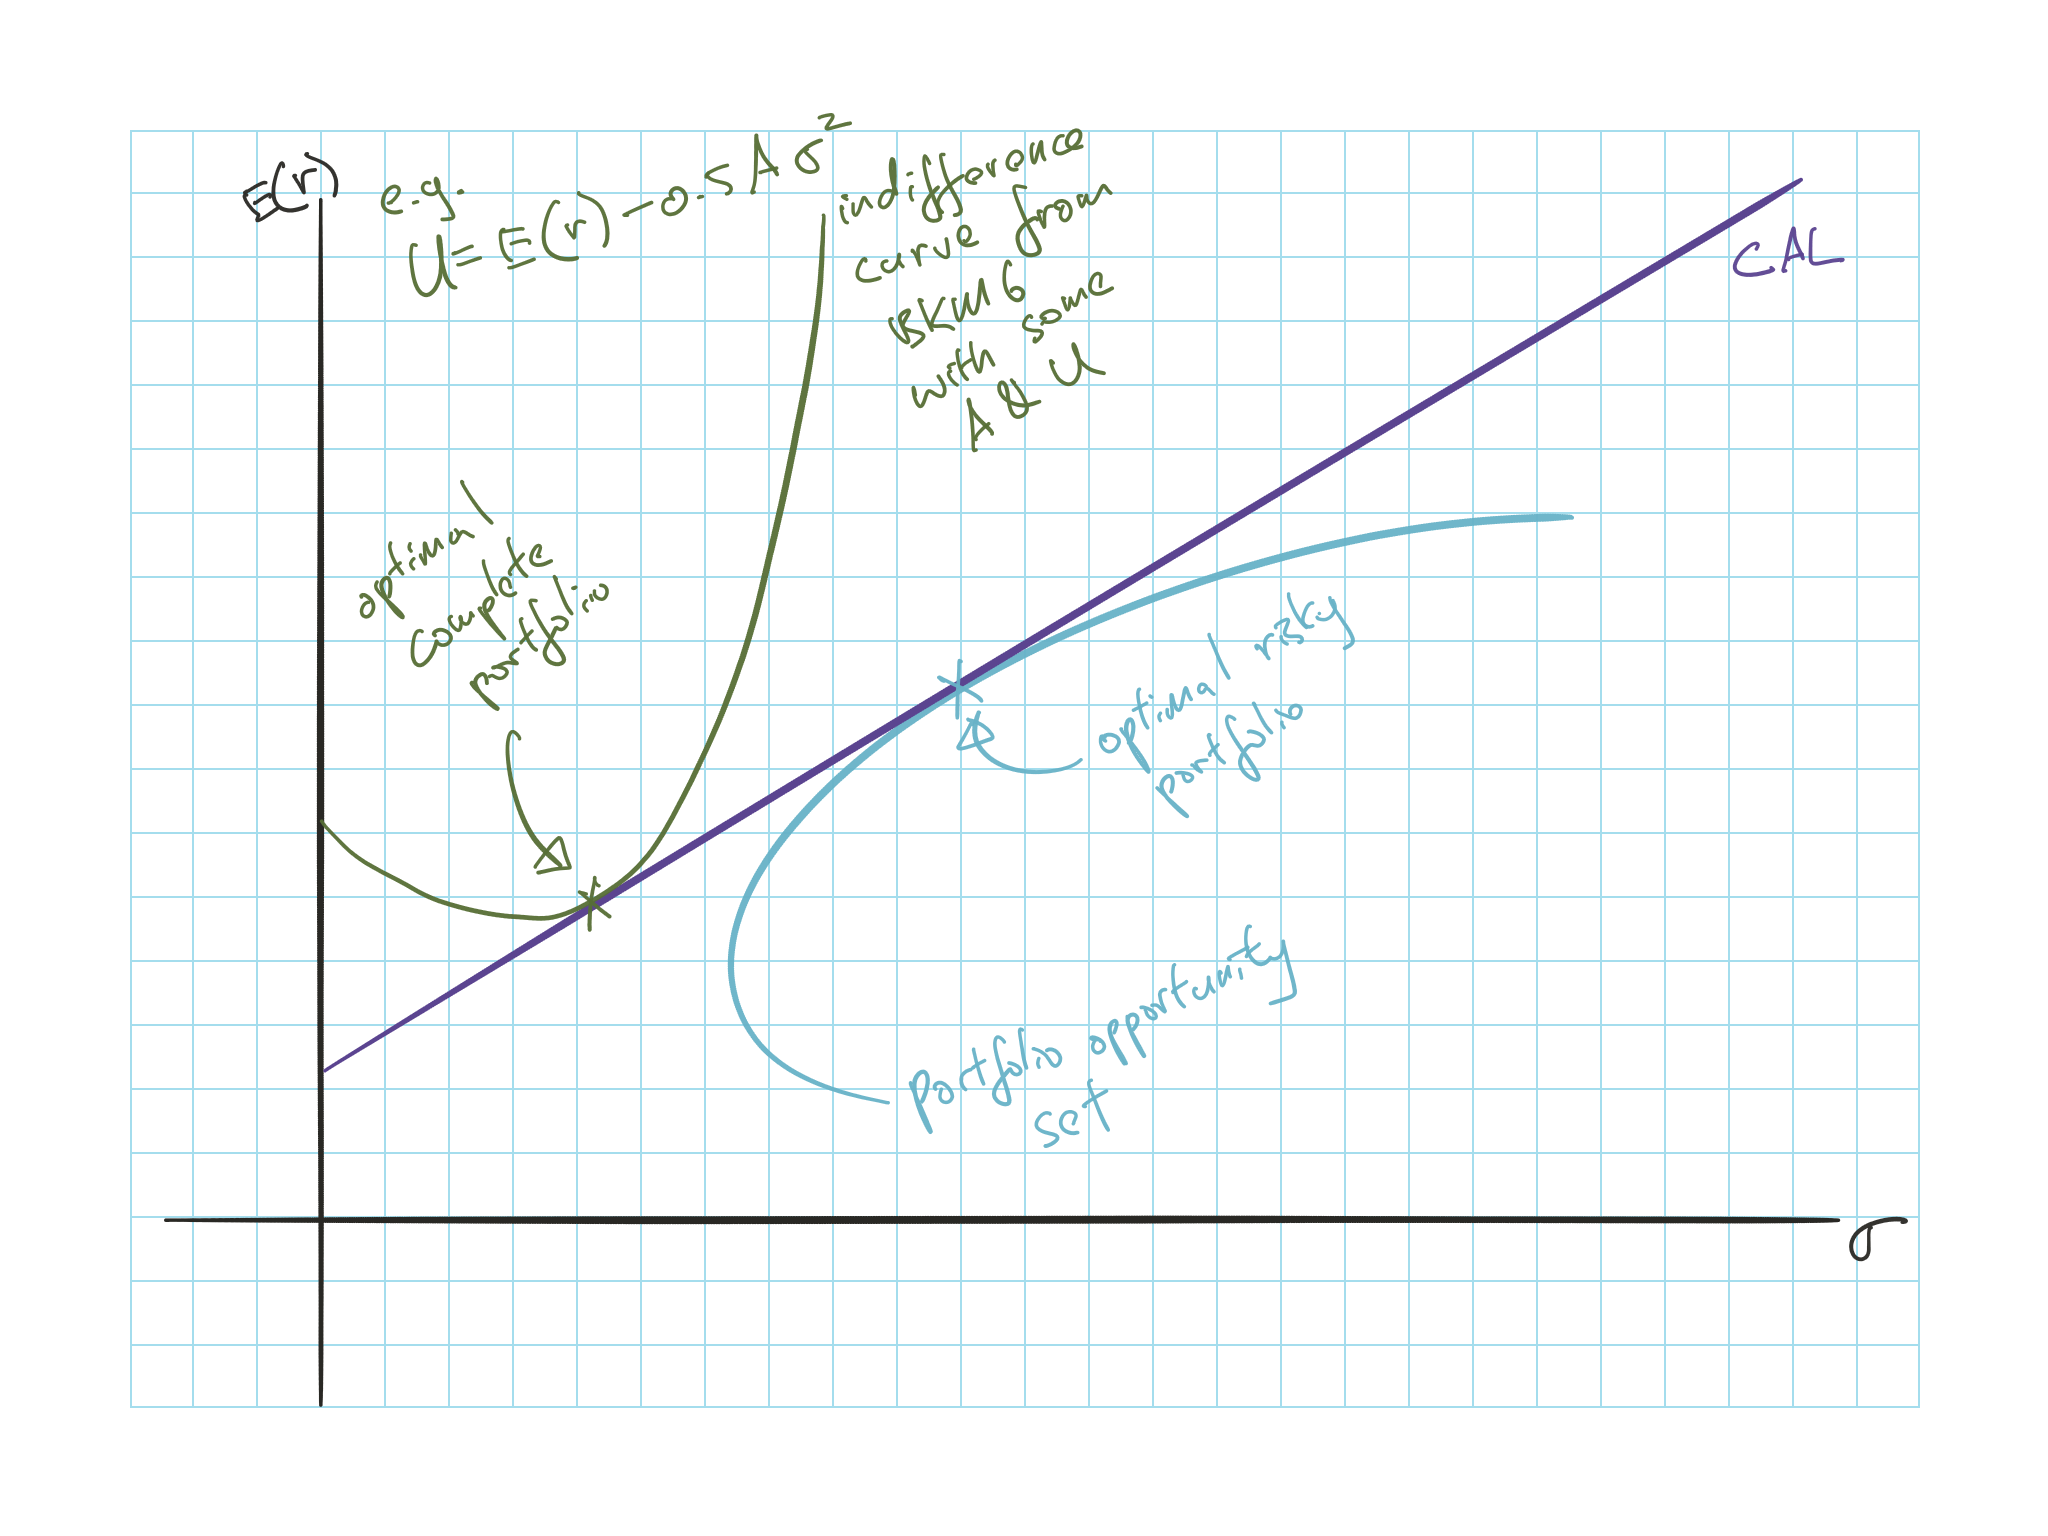 E(r)
e.g.
U = E(r) - 0.5 A σ²
indifference
curve from
BKM 6
with some
A & U
CAL
optimal
complete
portfolio
optimal risky
portfolio
portfolio opportunity
set
σ